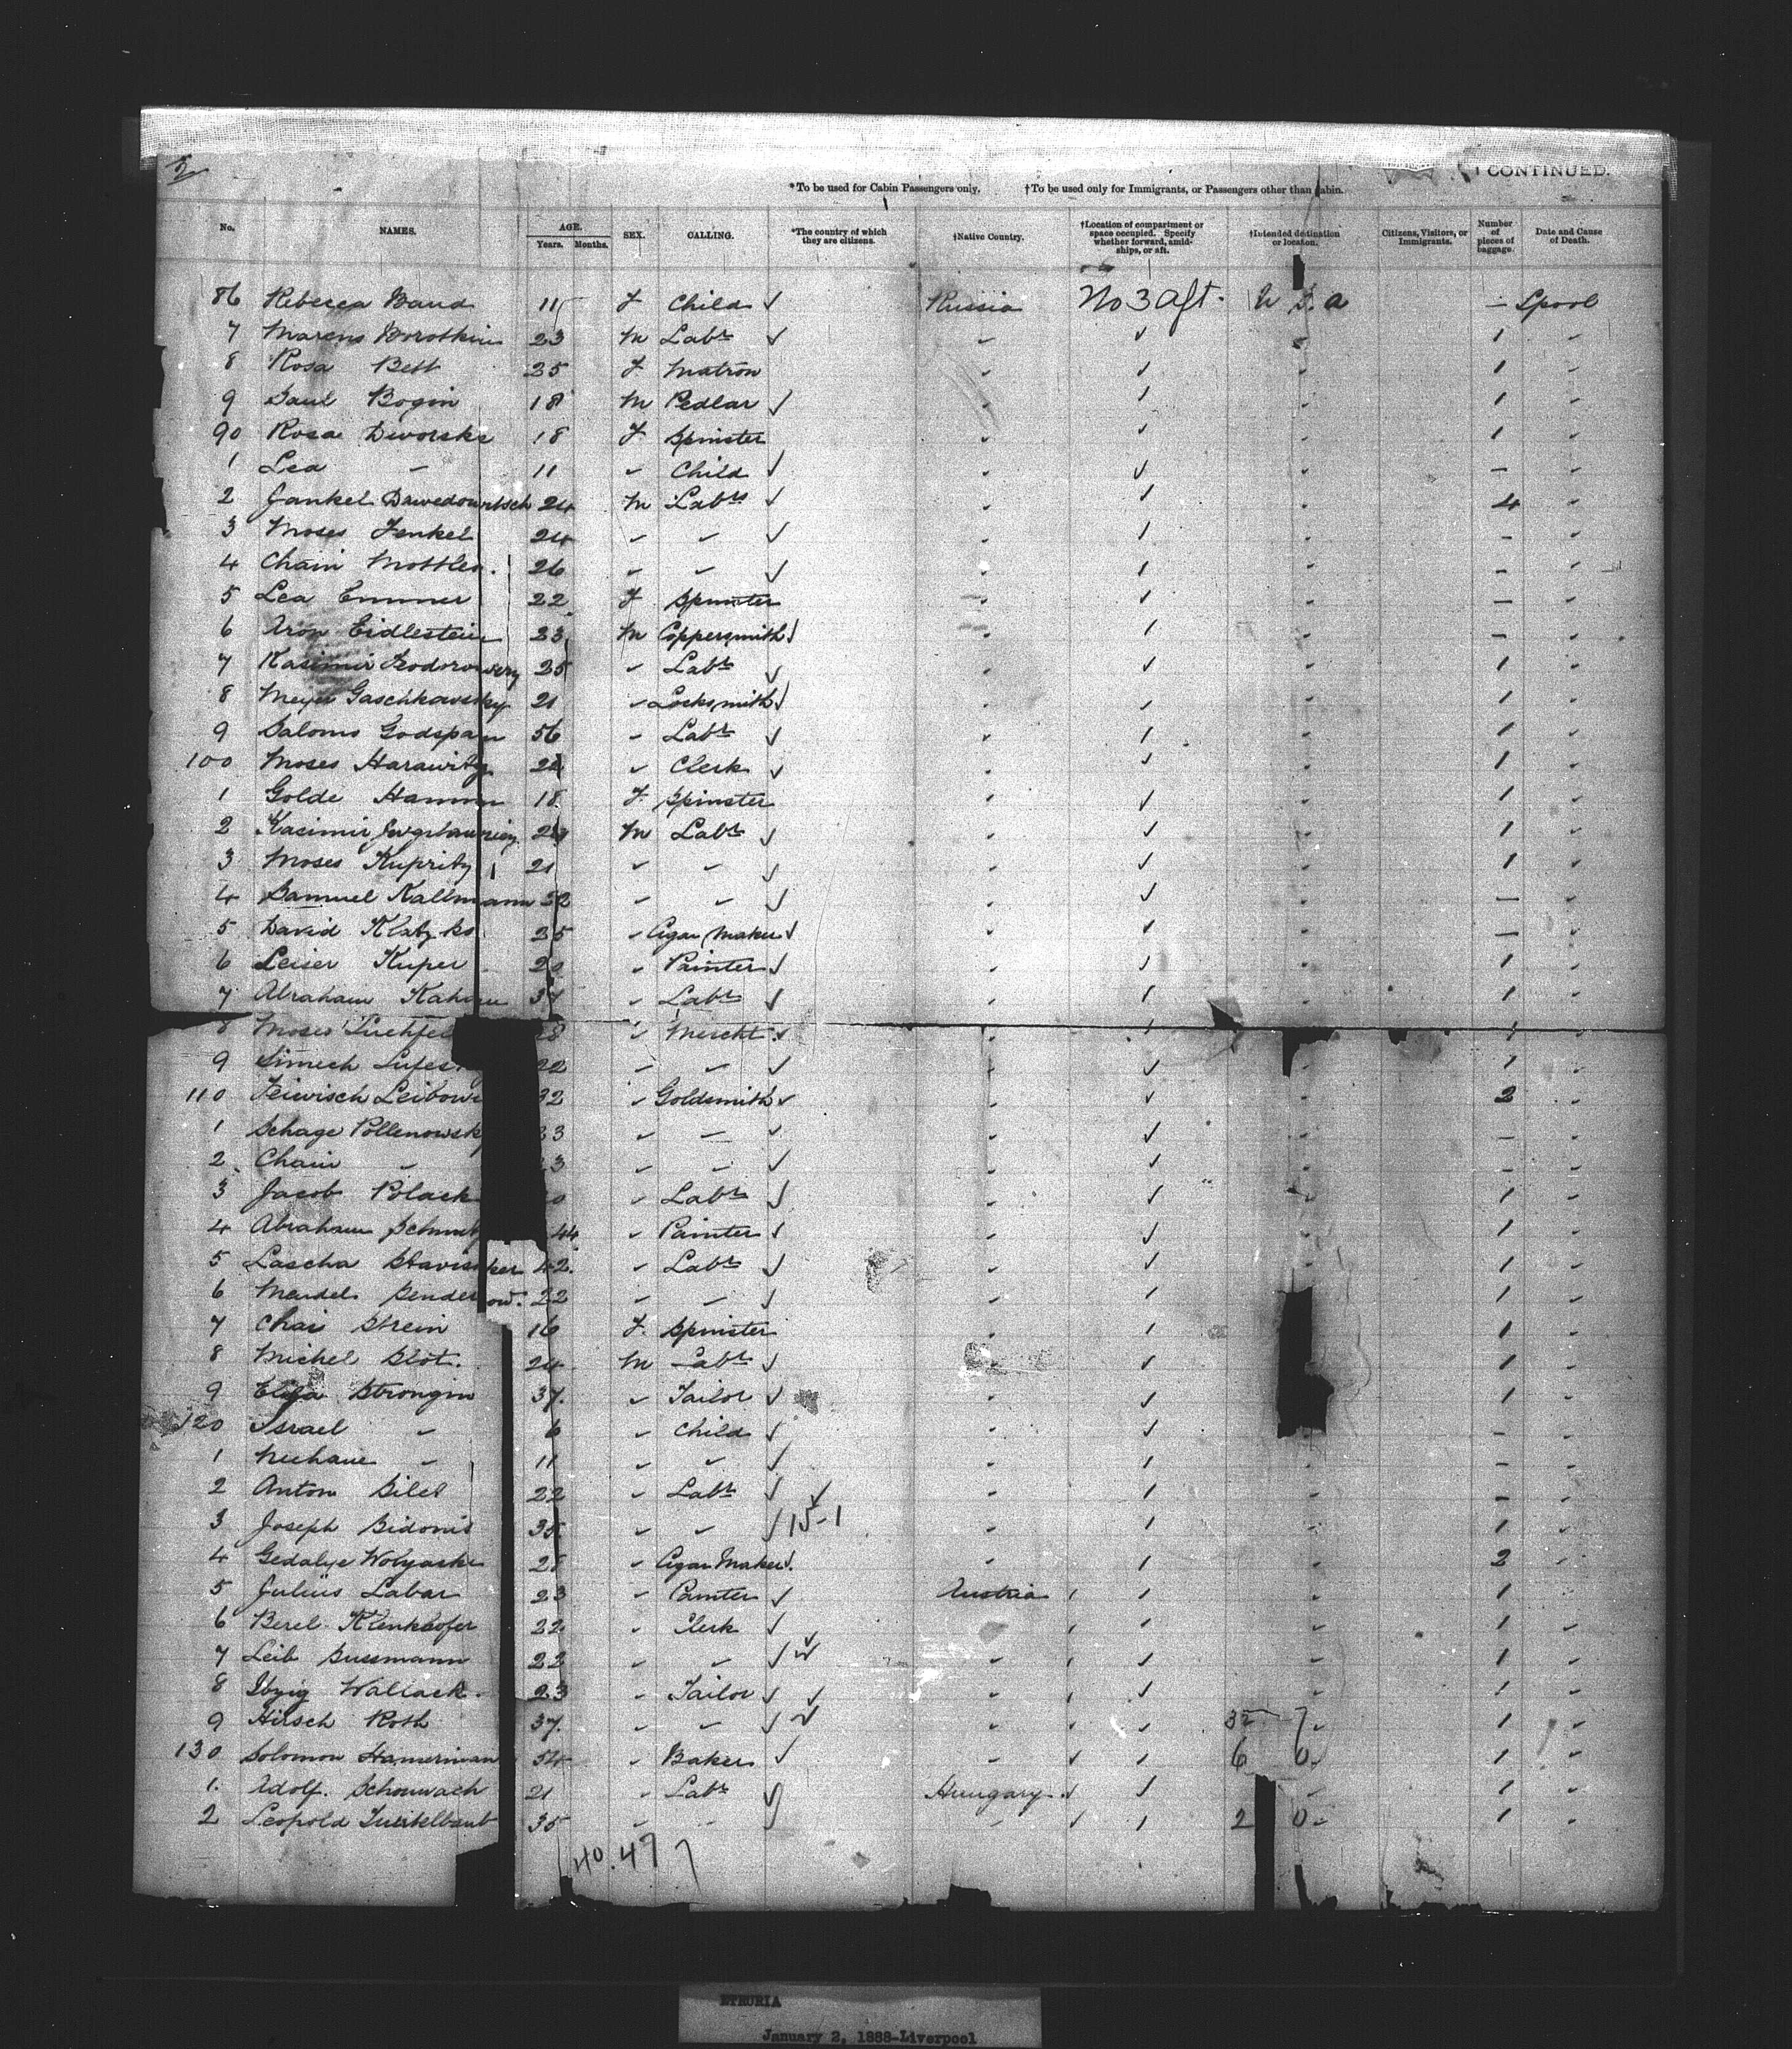 2
CONTINUED.
*To be used for Cabin Passengers only. †To be used only for Immigrants, or Passengers other than cabin.
No. NAMES. AGE. Years. Months. SEX. CALLING. *The country of which they are citizens. †Native Country. †Location of compartment or space occupied. Specify whether forward, amid-ships, or aft. †Intended destination or location. Citizens, Visitors, or Immigrants. Number of pieces of baggage. Date and Cause of Death.
86 Rebecca Baud 11 F Child ✓ Russia No 3 aft. U S. a — Lpool
7 Marcus Borotkin 23 M Labr ✓ 1
8 Rosa Bett 25 F Matron 1
9 Saul Bogin 18 M Pedlar ✓ 1
90 Rosa Dworske 18 F Spinster 1
1 Lea 11 Child ✓ —
2 Jankel Dawedowitsch 24 M Labr ✓ 4
3 Moses Fenkel 24 ✓ —
4 Chain Mottler. 26 ✓ —
5 Lea Emmer 22 F Spinster —
6 Aron Eidlestein 23 M Coppersmith ✓ —
7 Kasimir 25 Labr ✓ 1
8 Meyer Gaschkawsky 21 Locksmith ✓ 1
9 Salomo Godspan 56 Labr ✓ 1
100 Moses Harawitz Clerk ✓ 1
1 Golde 18 F. Spinster 1
2 Kasimir M Labr ✓ 1
3 Moses Kupritz 21 ✓ 1
4 Samuel Kallmann 52 ✓ —
5 David Klatzko 35 Cigar Maker ✓ —
6 Leiser Kuper 20 Painter ✓ 1
7 Abraham 37 Labr ✓ 1
8 Moses 28 Mercht. ✓ 1
9 22 ✓ 1
110 Feiwisch Leibow 32 Goldsmith ✓ 2
1 Schage Pollenowsk 23 ✓ —
2 Chain 23 ✓ —
3 Jacob Polack Labr ✓ 1
4 Abraham 44 Painter ✓ 1
5 Lascha Stavisker 42. Labr ✓ 1
6 Mendel Senderow. 22 ✓ 1
7 Chai Strein 16 F. Spinster 1
8 Michel Slot. 24 M Labr ✓ 1
9 Strongin 37. Tailor ✓ 1
120 Israel 6 Child ✓ —
1 11 ✓ —
2 Anton Siles 22 Labr ✓ —
3 Joseph Sidonis 35 ✓ 15-1 1
4 Gedalye 28 Cigar Maker ✓ 2
5 Julius Labar 23 Painter ✓ Austria 1
6 Berel Klenkhofer 22 Clerk ✓ 1
7 Leib Sussmann 22 ✓ 1
8 Itzig Wallack. 23 Tailor ✓ 1
9 Hirsch Roth 37. ✓ 1
130 Solomon Hamerman 54 Baker ✓ 6 0 1
1. Adolf. Schonwach 21 Labr Hungary. 1
2 Leopold 35 2 0 1
40.47
ETRURIA
January 2, 1888-Liverpool